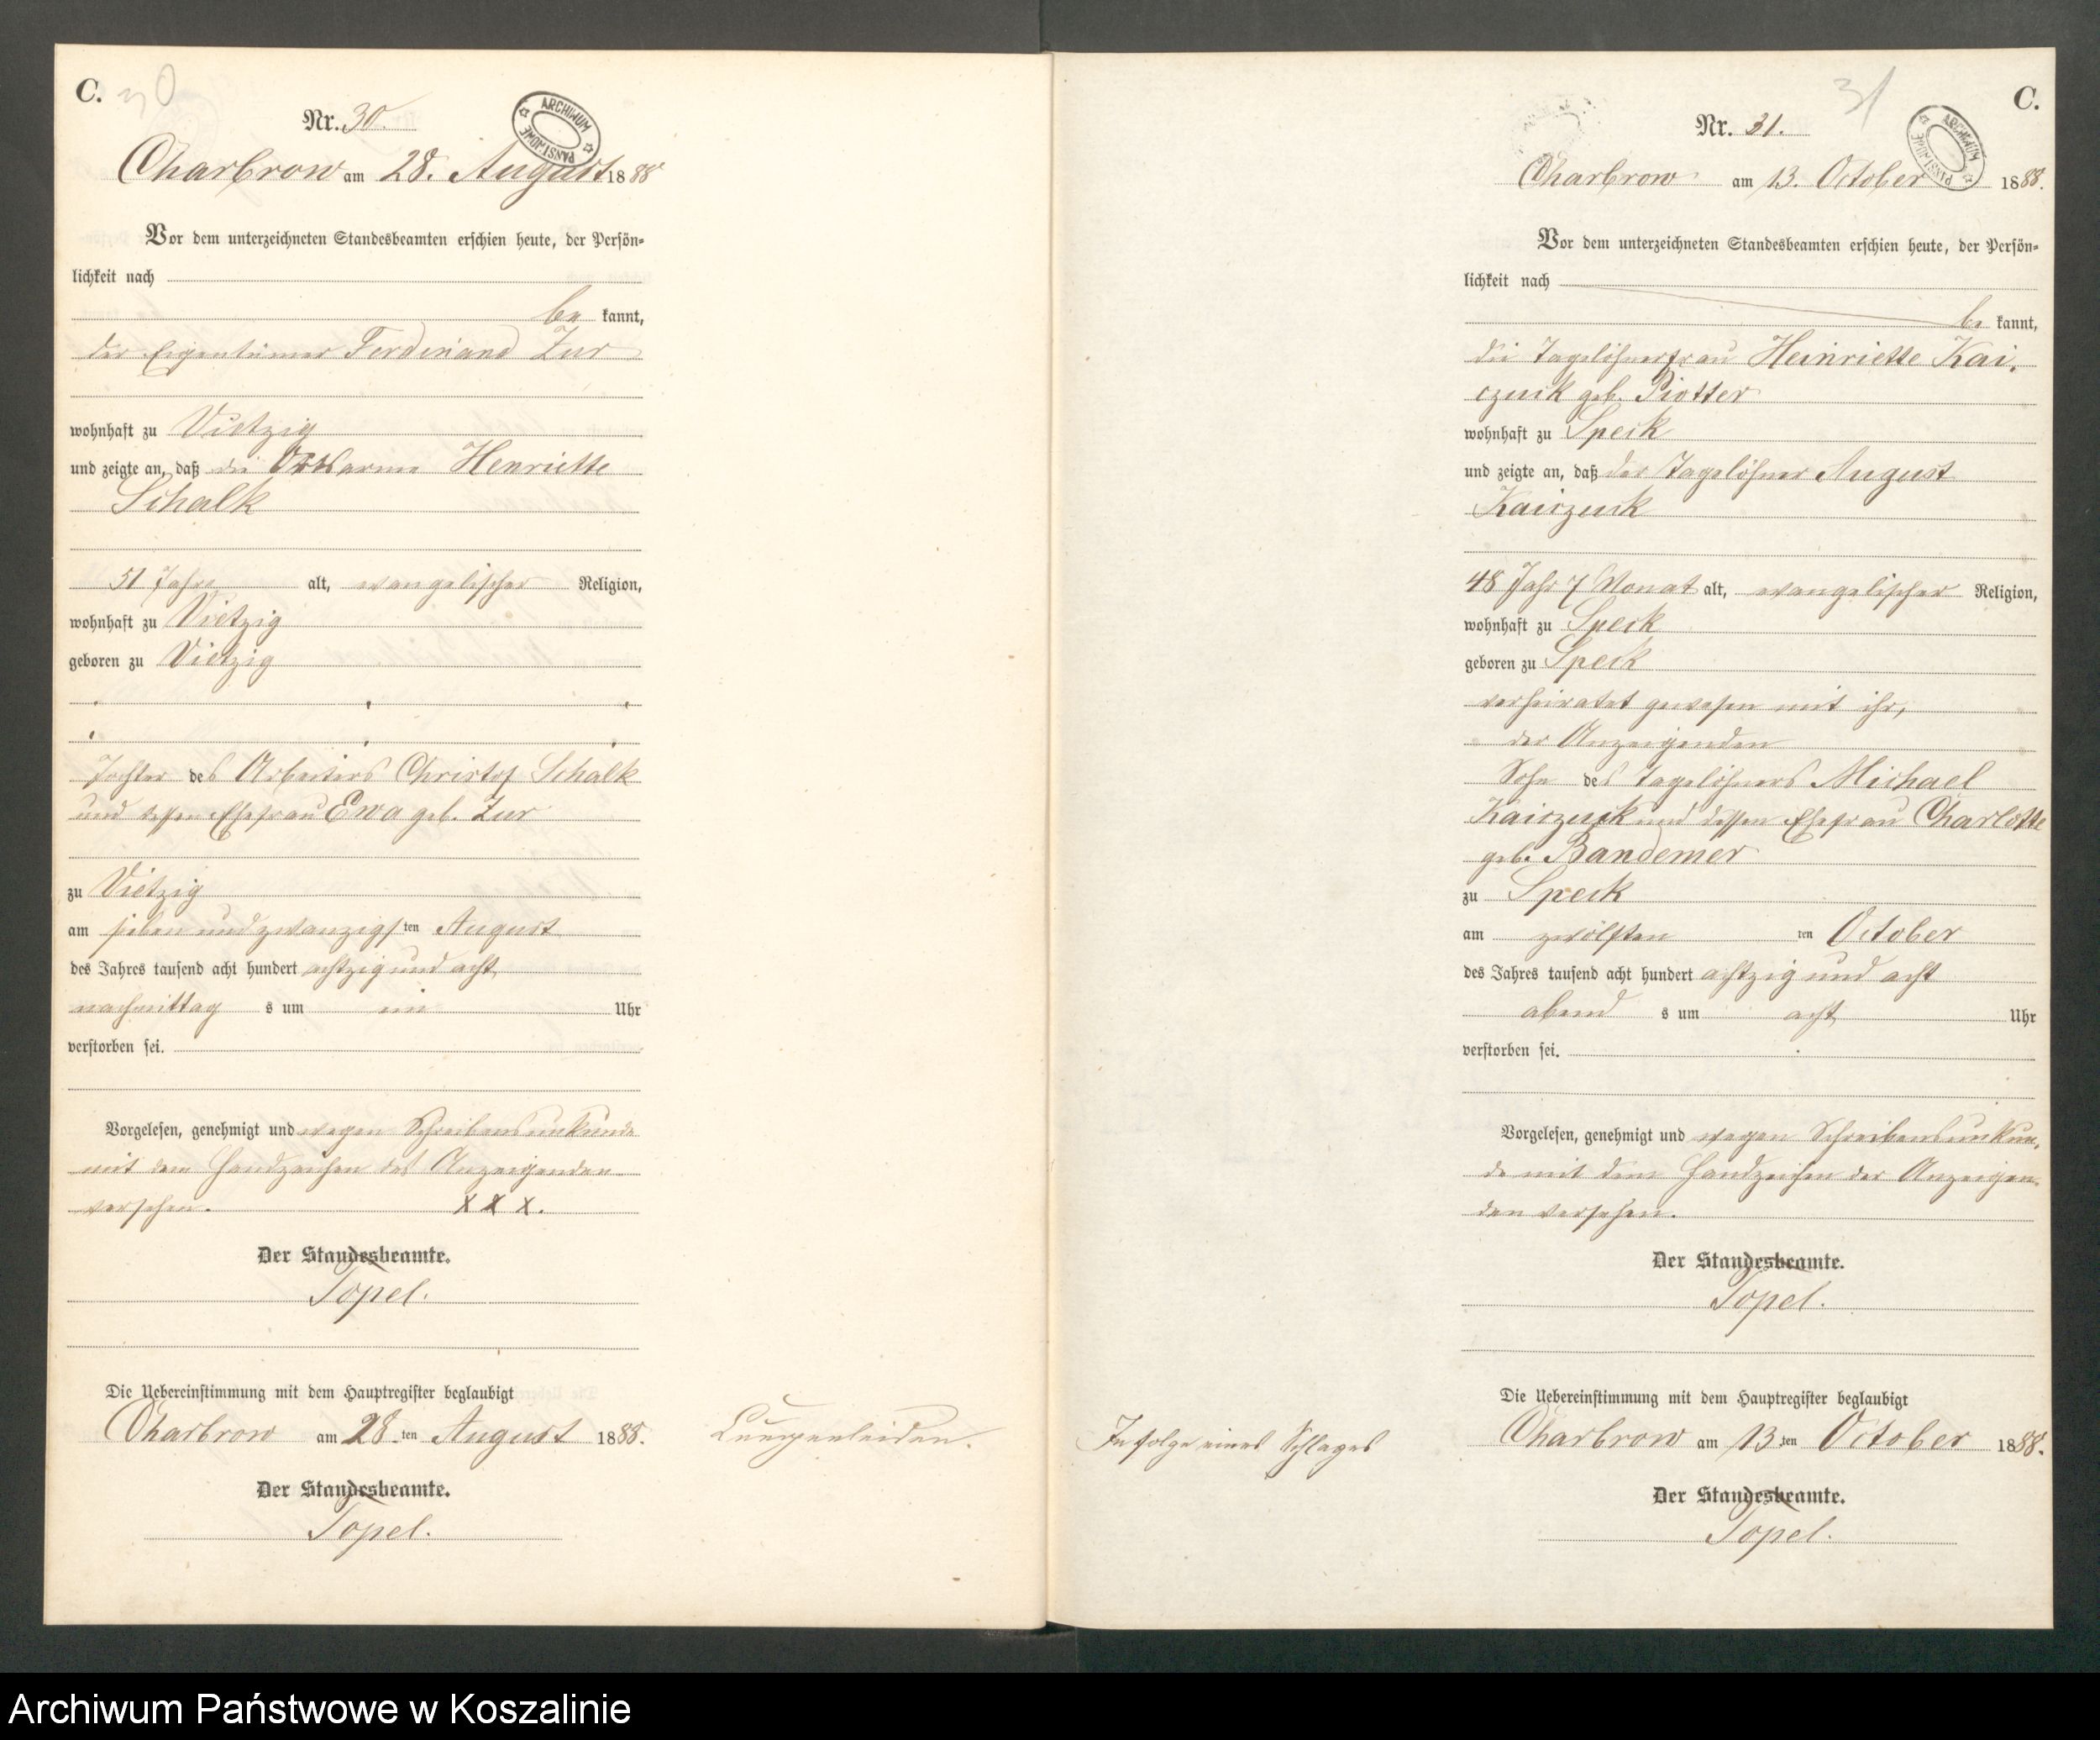 C. 30
Nr. 30.
ARCHIWUM PAŃSTWOWE
Charbrow am 28. August 1888
Vor dem unterzeichneten Standesbeamten erschien heute, der Persön-
lichkeit nach
be kannt,
der Eigentümer Ferdinand Zur
wohnhaft zu Vietzig
und zeigte an, daß die Ortsarme Henriette
Schalk
51 Jahre alt, evangelischer Religion,
wohnhaft zu Vietzig
geboren zu Vietzig
Tochter des Arbeiters Christof Schalk
und dessen Ehefrau Ewa geb. Zur
zu Vietzig
am sieben und zwanzigsten August
des Jahres tausend acht hundert achtzig und acht
nachmittag s um ein Uhr
verstorben sei.
Vorgelesen, genehmigt und wegen Schreibensunkunde
mit dem Handzeichen des Anzeigenden
versehen. X X X.
Der Standesbeamte.
Topel.
Die Uebereinstimmung mit dem Hauptregister beglaubigt
Charbrow am 28 ten August 1888.
Der Standesbeamte.
Topel.
Lungenleiden.
31 C.
Nr. 31.
ARCHIWUM PAŃSTWOWE
Charbrow am 13. October 1888.
Vor dem unterzeichneten Standesbeamten erschien heute, der Persön-
lichkeit nach
be kannt,
die Tagelöhnerfrau Heinriette Kai,
czuck geb. Piotter
wohnhaft zu Speck
und zeigte an, daß der Tagelöhner August
Kaiczuck
48 Jahr 7 Monat alt, evangelischer Religion,
wohnhaft zu Speck
geboren zu Speck
verheiratet gewesen mit ihr,
der Anzeigenden
Sohn des Tagelöhners Michael
Kaiczuck und dessen Ehefrau Charlotte
geb. Bandemer
zu Speck
am zwölften ten October
des Jahres tausend acht hundert achtzig und acht
abend s um acht Uhr
verstorben sei.
Vorgelesen, genehmigt und wegen Schreibensunkun,
de mit dem Handzeichen der Anzeigen,
den versehen.
Der Standesbeamte.
Topel.
Die Uebereinstimmung mit dem Hauptregister beglaubigt
Charbrow am 13 ten October 1888.
Der Standesbeamte.
Topel.
Infolge eines Schlages
Archiwum Państwowe w Koszalinie